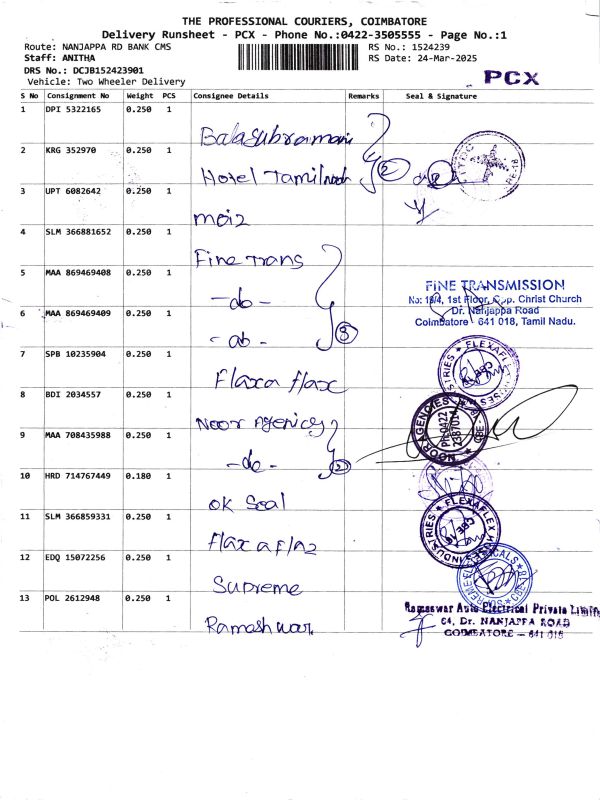 THE PROFESSIONAL COURIERS, COIMBATORE
Delivery Runsheet - PCX - Phone No.:0422-3505555 - Page No.:1
Route: NANJAPPA RD BANK CMS
RS No.: 1524239
Staff: ANITHA
RS Date: 24-Mar-2025
DRS No.: DCJB152423901
Vehicle: Two Wheeler Delivery
PCX
S No Consignment No Weight PCS Consignee Details Remarks Seal & Signature
1 DPI 5322165 0.250 1
Balasubramani
2 KRG 352970 0.250 1
Hotel Tamilnadu
2
3 UPT 6082642 0.250 1
4 SLM 366881652 0.250 1
Fine Trans
5 MAA 869469408 0.250 1
-do-
FINE TRANSMISSION
No: 19/4, 1st Floor, Opp. Christ Church
Dr. Nanjappa Road
Coimbatore - 641 018, Tamil Nadu.
6 MAA 869469409 0.250 1
3
7 SPB 10235904 0.250 1
Flaxa flax
FLEXAFLEX HOSES INDUSTRIES
8 BDI 2034557 0.250 1
Noor Agencies
NOOR AGENCIES
PH:0422
2387014
9 MAA 708435988 0.250 1
-do-
2
10 HRD 714767449 0.180 1
OK Seal
11 SLM 366859331 0.250 1
FLEXAFLEX HOSES INDUSTRIES
12 EDQ 15072256 0.250 1
Supreme
SUPREME CHEMICALS
13 POL 2612948 0.250 1
Rameshwar
Rameswar Auto Electrical Private Limited
64, Dr. NANJAPPA ROAD
COIMBATORE - 641 018